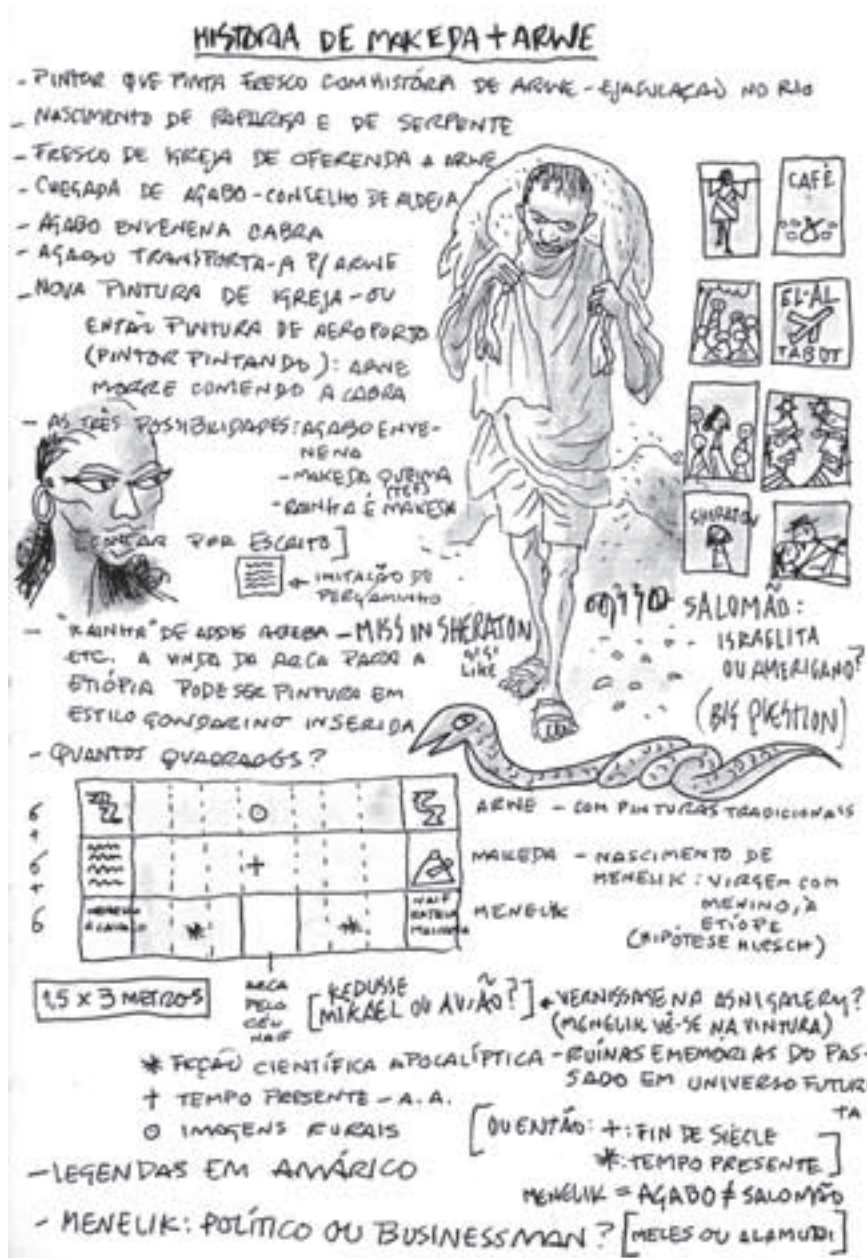 HISTÓRIA DE MAKEDA + ARWE
- PINTOR QUE PINTA FRESCO COM HISTÓRIA DE ARWE - EJACULAÇÃO NO RIO
- NASCIMENTO DE RAPARIGA E DE SERPENTE
- FRESCO DE IGREJA DE OFERENDA A ARWE
- CHEGADA DE AGABO - CONSELHO DE ALDEIA
- AGABO ENVENENA CABRA
- AGABO TRANSPORTA-A P/ ARWE
- NOVA PINTURA DE IGREJA - OU
ENTÃO PINTURA DE AEROPORTO
(PINTOR PINTANDO): ARWE
MORRE COMENDO A CABRA
- AS TRÊS POSSIBILIDADES: AGABO ENVE-
NENA
- MAKEDA QUEIMA
(TEF)
- RAINHA É MAKEDA
CONTAR POR ESCRITO]
← IMITAÇÃO DE
PERGAMINHO
CAFÉ
EL-AL
TABOT
SHERATON
- "RAINHA" DE ADDIS ABEBA - MISS IN SHERATON
GIGI
LIKE
ETC. A VINDA DA ARCA PARA A
ETIÓPIA PODE SER PINTURA EM
ESTILO GONDARINO INSERIDA
SALOMÃO:
- ISRAELITA
OU AMERICANO?
(BIG QUESTION)
- QUANTOS QUADRADOS?
6
+
6
+
6
ARWE - COM PINTURAS TRADICIONAIS
MAKEDA - NASCIMENTO DE
MENELIK: VIRGEM COM
MENINO, À
ETÍOPE
(HIPÓTESE HIRSCH)
MENELIK
NAIF
1,5 X 3 METROS
ARCA
PELO
CÉU
NAIF
[KEDUSSE
MIKAEL OU AVIÃO?]
VERNISSAGE NA ASNI GALERY?
(MENELIK VÊ-SE NA PINTURA)
* FICÇÃO CIENTÍFICA APOCALÍPTICA - RUÍNAS E MEMÓRIAS DO PAS-
SADO EM UNIVERSO FUTURIS
TA
+ TEMPO PRESENTE - A.A.
O IMAGENS RURAIS
[OU ENTÃO: +: FIN DE SIÈCLE
*: TEMPO PRESENTE]
- LEGENDAS EM AMÁRICO
MENELIK = AGABO ≠ SALOMÃO
- MENELIK: POLÍTICO OU BUSINESSMAN? [MELES OU ALAMUDI]